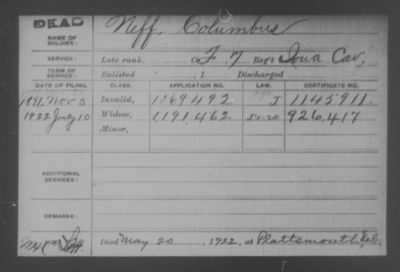 DEAD
Neff, Columbus
NAME OF SOLDIER:
SERVICE: Late rank, Co. F. 7 Reg't Iowa Cav.
TERM OF SERVICE: Enlisted , 1 Discharged
DATE OF FILING. CLASS. APPLICATION NO. LAW. CERTIFICATE NO.
1891, Nov 5 Invalid, 1069.492 J 1145911.
1922 July 10 Widow, 1,191,462 926,417
Minor,
ADDITIONAL SERVICES:
REMARKS:
Died May 20 , 1922, at Plattsmouth Neb.